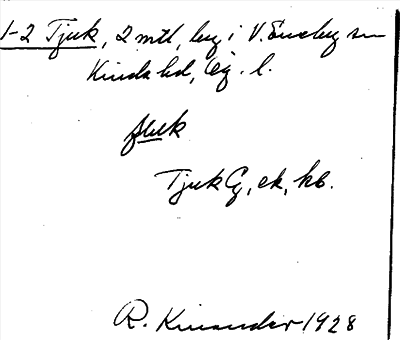 1-2 Tjuk, 2 mtl, by i V. Eneby sn
Kinda hd, Ög. l.
Tjuk G, ek, hb.
R. Kinander 1928